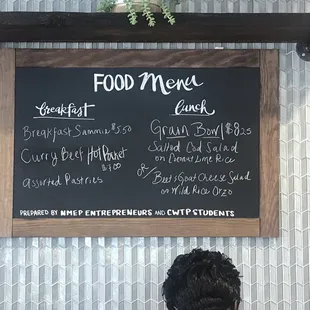 FOOD Menu
breakfast
Breakfast Sammie $5.50
Curry Beef Hot Pocket
$7.00
Assorted Pastries
lunch
Grain Bowl $8.25
Salted Cod Salad
on Coconut Lime Rice
OR/
Beet & Goat Cheese Salad
on Wild Rice Orzo
PREPARED BY NMEP ENTREPRENEURS AND CWTP STUDENTS